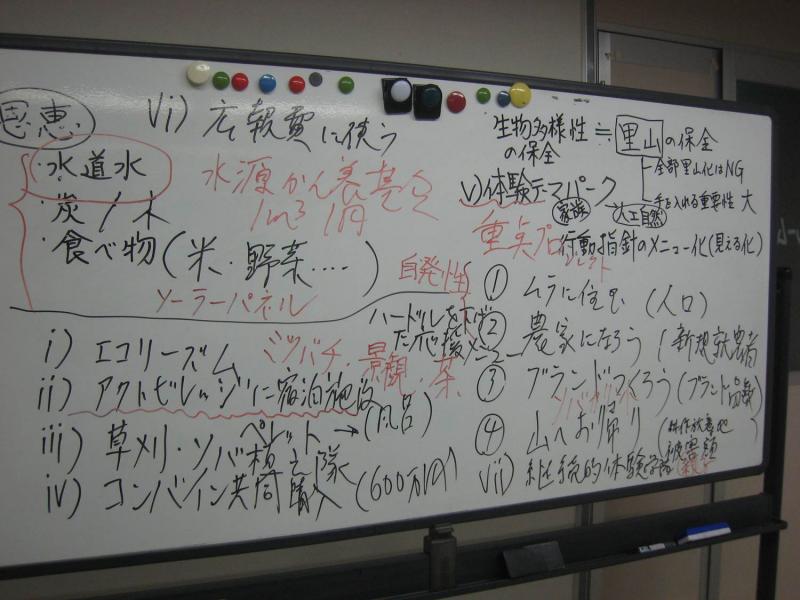 恩恵
・水道水
・炭/木
・食べ物(米・野菜‥‥)
ソーラーパネル
vi) 広報費に使う
水源かん養基金
1m³ 1円
i) エコリーズム ミツバチ・景観・茶
ii) アクトビレッジに宿泊施設
ペレット→(風呂)
iii) 草メリ・ソバ植え隊
iv) コンバイン共同購入(600万円)
生物多様性の保全≒里山の保全
全部里山化はNG
手を入れる重要性 大
v)体験テーマパーク
家族
人工自然
重点プロジェクト
行動指針のメニュー化(見える化)
自発性
ハードルを下げた応援メニュー
① ムラに住む (人口)
② 農家になろう (新規就農者
③ ブランドつくろう(ブランド品数)
④ 山へお帰り (耕作放棄地
被害額
vii) 継続的体験学習